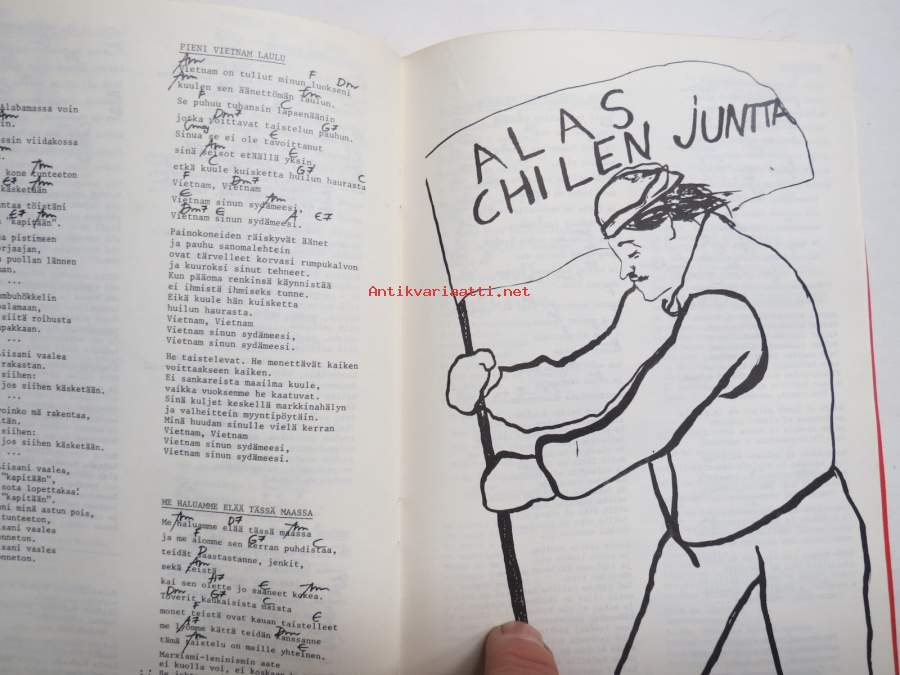 Alabamassa voin
ssin viidakossa
kone tunteeton
käsketään
ntaa töistäni
"kapitään".
a pistimeen
n puollan lännen
...
mbuhökkelin
palamaan,
siitä roihusta
upakkaan.
...
iisani vaalea
rakastan.
siihen:
jos siihen käsketään.
...
voinko mä rakentaa,
siihen:
jos siihen käsketään.
...
iisani vaalea,
"kapitään",
sota lopettakaa!
"kapitään".
ni minä astun pois,
tunteeton,
sani vaalea
onneton.
isani vaalea
onneton.
PIENI VIETNAM LAULU
Am F Dm
Vietnam on tullut minun luokseni
Am Em
kuulen sen äänettömän laulun.
F C
Se puhuu tuhansin lapsenäänin
Dm7 G7
jotka voittavat taistelun pauhun.
E
Sinua se ei ole tavoittanut
Am E
sinä seisot etäällä yksin,
C G7 C
etkä kuule kuisketta huilun haurasta
F Dm7
Vietnam, Vietnam
E Am
Vietnam sinun sydämeesi,
Dm7 E A E7
Vietnam sinun sydämeesi.
Painokoneiden räiskyvät äänet
ja pauhu sanomalehtein
ovat tärvelleet korvasi rumpukalvon
ja kuuroksi sinut tehneet.
Kun pääoma renkinsä käynnistää
ei ihmistä ihmiseks tunne.
Eikä kuule hän kuisketta
huilun haurasta.
Vietnam, Vietnam
Vietnam sinun sydämeesi,
Vietnam sinun sydämeesi.
He taistelevat. He menettävät kaiken
voittaakseen kaiken.
Ei sankareista maailma kuule,
vaikka vuoksemme he kaatuvat.
Sinä kuljet keskellä markkinahälyn
ja valheittein myyntipöytäin.
Minä huudan sinulle vielä kerran
Vietnam, Vietnam
Vietnam sinun sydämeesi,
Vietnam sinun sydämeesi.
ME HALUAMME ELÄÄ TÄSSÄ MAASSA
Am D7 Am
Me haluamme elää tässä maassa
F G7 C
ja me aiomme sen kerran puhdistaa,
D
teidät saastastanne, jenkit,
Am
sekä teistä
H7 E Am
kai sen olette jo saaneet kokea.
Dm G7 C
Toverit kaukaisista maista
F E
monet teistä ovat kauan taistelleet
A7 Dm
me lyömme kättä teidän kanssanne
Am E
tämä taistelu on meille yhteinen.
Marxismi-leninismin aate
ei kuolla voi, ei koskaan
ALAS
CHILEN JUNTTA
Antikvariaatti.net